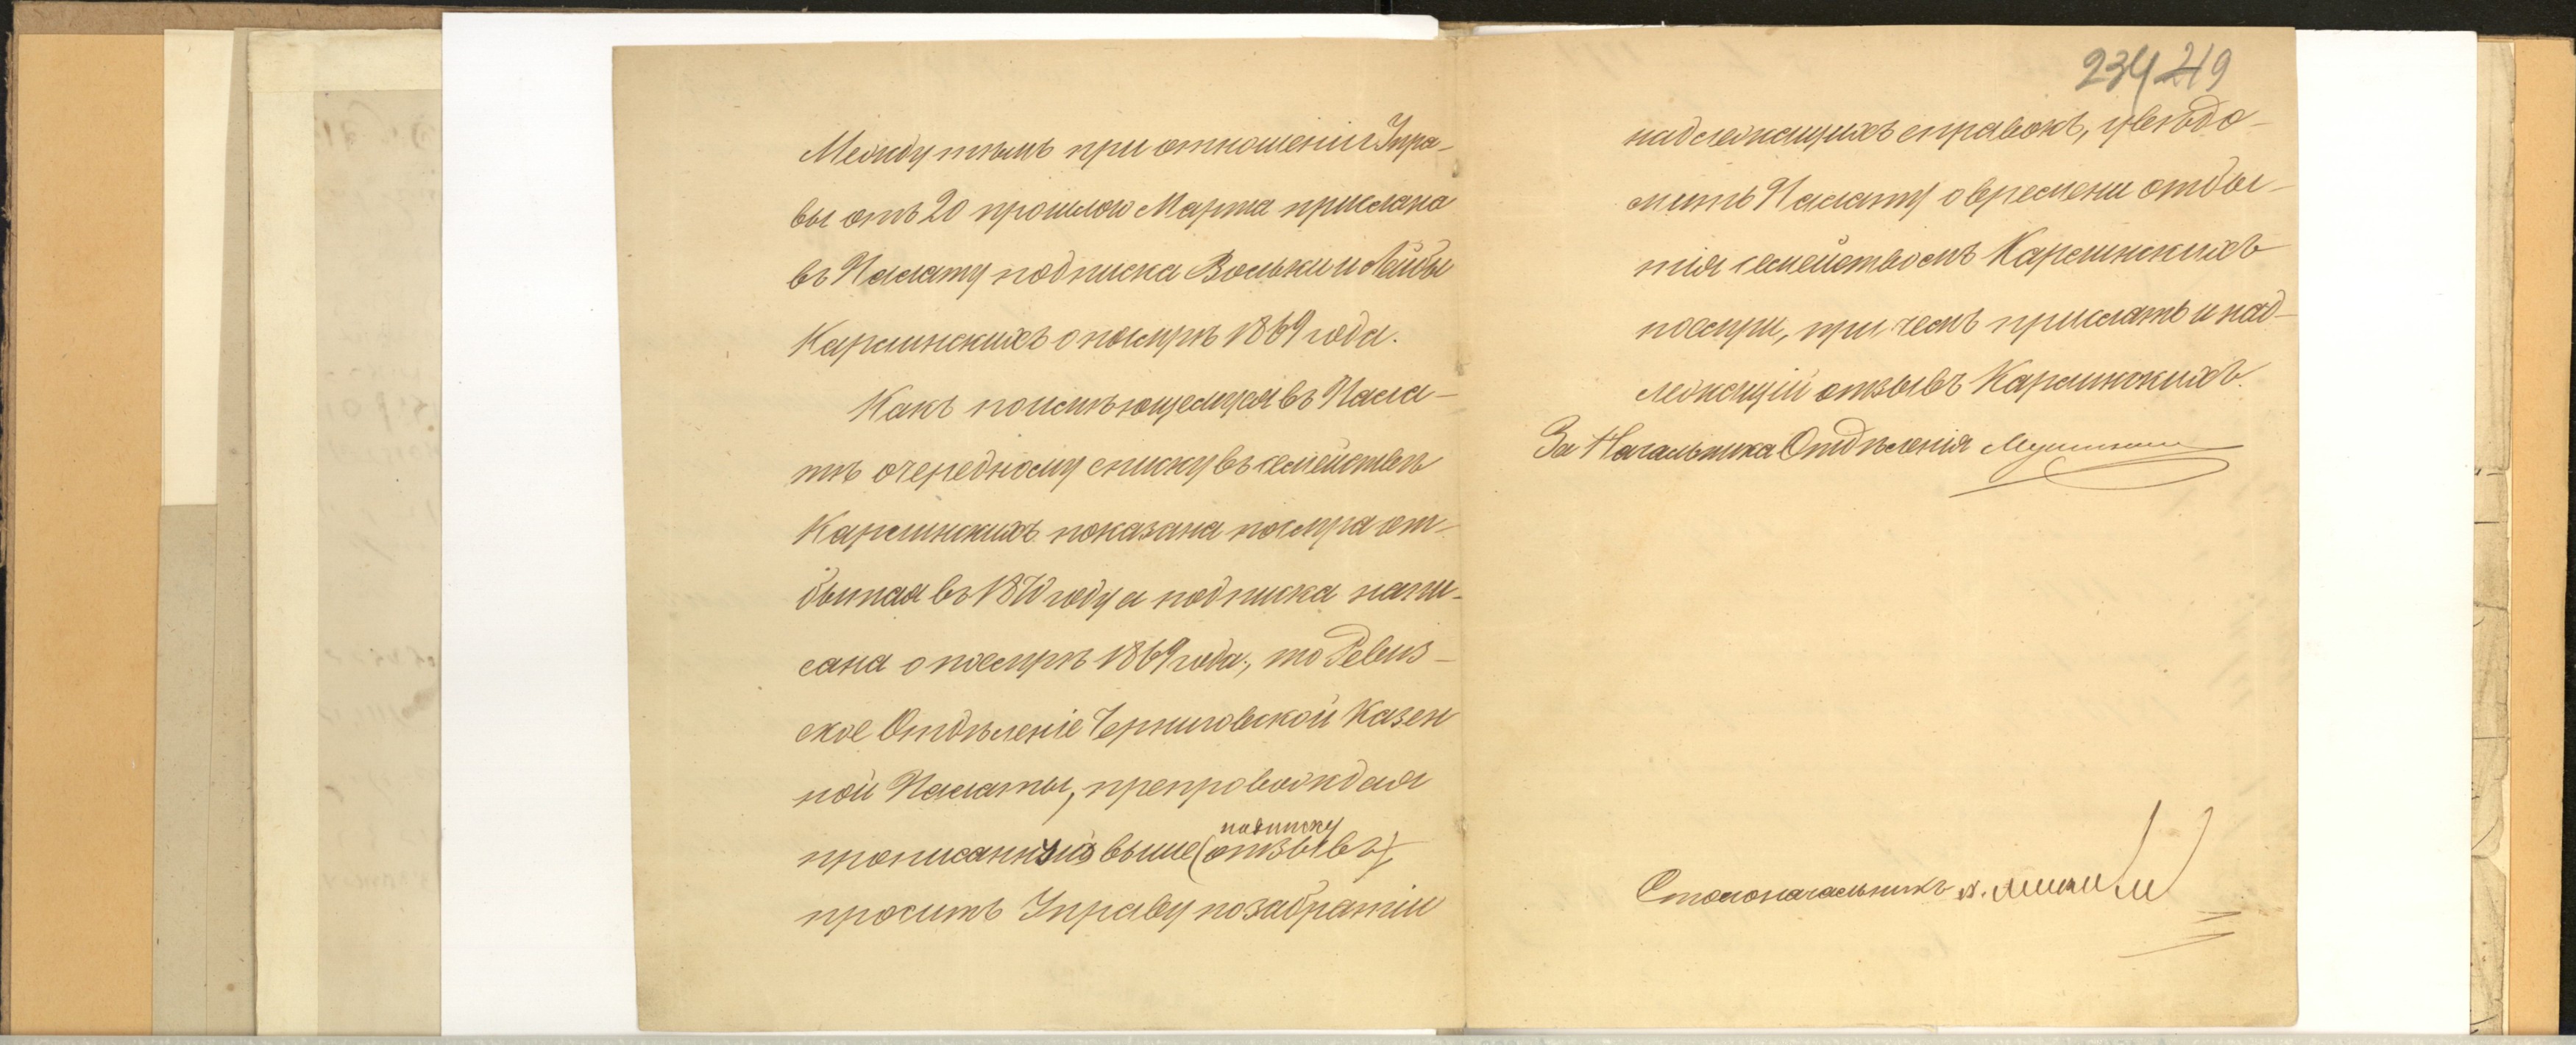 Между тѣмъ при отношеніи Упра-
вы отъ 20 прошлого Марта прислана
въ Палату подписка Вольки и Лейбы
Карлинскихъ о поимрѣ 1869 года.
Какъ по имѣющемуся въ Пала-
тѣ очередному списку въ семействѣ
Карлинскихъ показана поимра от-
бытая въ 1870 году а подписка напи-
сана о поимрѣ 1869 года, то Ревиз-
ское Отдѣленіе Черниговской Казен
ной Палаты, препровождая
подписку
прописанный выше (отзывъ),
просить Управу по забратіи
234 219
надлежащихъ справокъ, увѣдо-
мить Палату о времени отбы-
тія семействомъ Карлинскихъ
поимри, при чемъ прислать и над-
лежащій отзывъ Карлинскихъ.
За Начальника Отдѣленія
Столоначальникъ